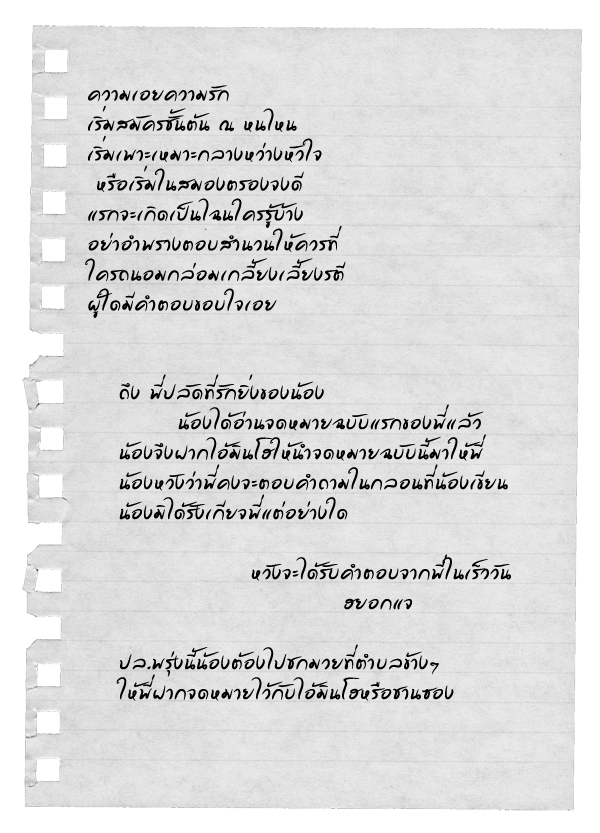 ความเอยความรัก
เริ่มสมัครชั้นต้น ณ หนไหน
เริ่มเพาะเหมาะกลางหว่างหัวใจ
หรือเริ่มในสมองตรองจงดี
แรกจะเกิดเป็นไฉนใครรู้บ้าง
อย่าอำพรางตอบสำนวนให้ควรที่
ใครถนอมกล่อมเกลี้ยงเลี้ยงรตี
ผู้ใดมีคำตอบขอบใจเอย
ถึง พี่ปลัดที่รักยิ่งของน้อง
น้องได้อ่านจดหมายฉบับแรกของพี่แล้ว
น้องจึงฝากไอ้มินโฮให้นำจดหมายฉบับนี้มาให้พี่
น้องหวังว่าพี่คงจะตอบคำถามในกลอนที่น้องเขียน
น้องมิได้รังเกียจพี่แต่อย่างใด
หวังจะได้รับคำตอบจากพี่ในเร็ววัน
ฮยอกแจ
ปล.พรุ่งนี้น้องต้องไปชกมวยที่ตำบลข้างๆ
ให้พี่ฝากจดหมายไว้กับไอ้มินโฮหรือชานซอง